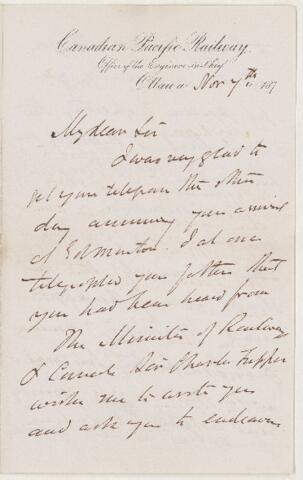 Canadian Pacific Railway.
Office of the Engineer in Chief
Ottawa Nov 7th 187
My dear Sir
I was very glad to
get your telegram the other
day announcing your arrival
at Edmonton. I at once
telegraphed your father that
you had been heard from
The Minister of Railways
& Canals Sir Charles Tupper
wishes me to write you
and ask you to endeavour